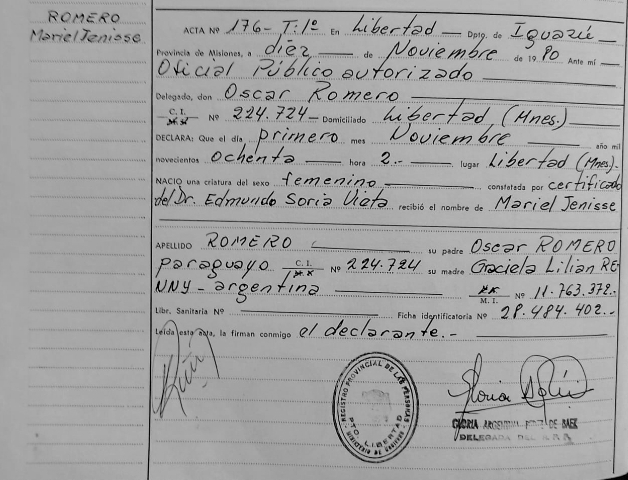 ROMERO
Mariel Jenisse
ACTA Nº 176- T:1º En Libertad Dpto. de Iguazú
Provincia de Misiones, a diez de Noviembre de 19 80 Ante mí
Oficial Público autorizado
Delegado, don Oscar Romero
C. I. Nº 224.724- Domiciliado Libertad, (Mnes.)
DECLARA: Que el día primero mes Noviembre año mil
novecientos ochenta hora 2.- lugar Libertad (Mnes)-
NACIO una criatura del sexo femenino constatada por certificado
del Dr. Edmundo Soria Vieta recibió el nombre de Mariel Jenisse
APELLIDO ROMERO su padre Oscar ROMERO
paraguayo C. I. Nº 224.724 su madre Graciela Lilian RE-
NNY - argentina M. I. Nº 11.763.372.-
Libr. Sanitaria Nº Ficha identificatoria Nº 28.484.402.-
Leída esta acta, la firman conmigo el declarante.-
REGISTRO PROVINCIAL DE LAS PERSONAS
PTO. LIBERTAD
GLORIA ARGENTINA DE BAEZ
DELEGADA DEL R.P.P.